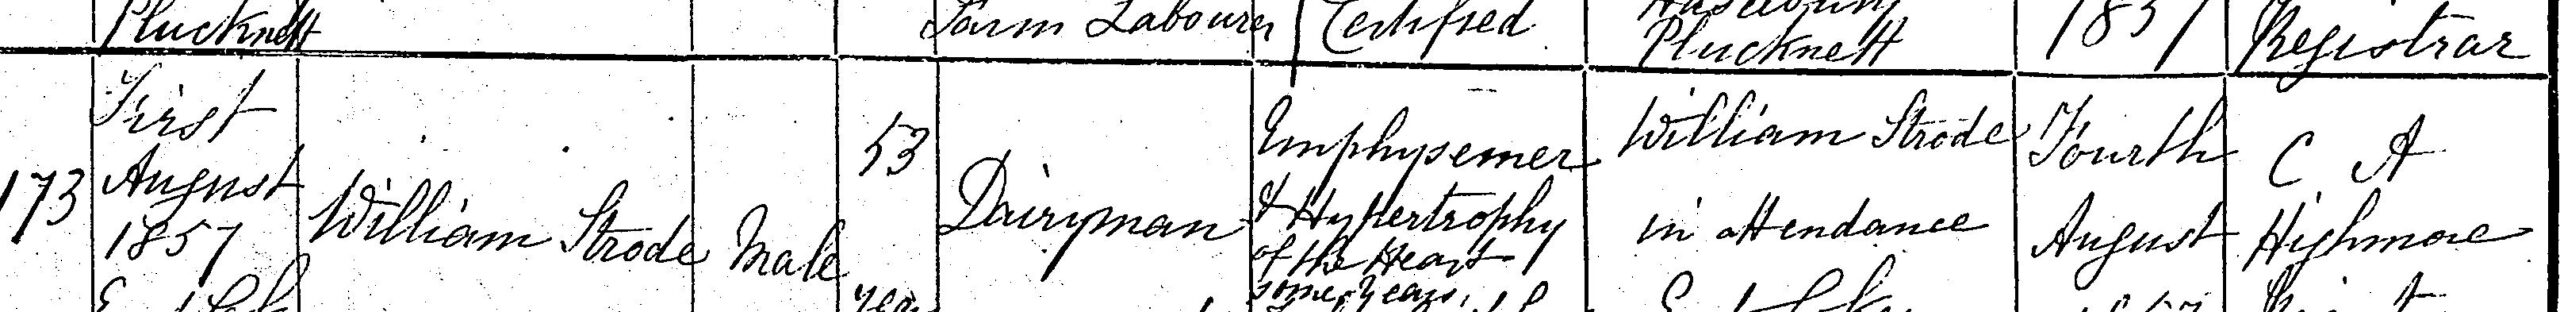 Plucknett
Farm Labourer
Certified
Plucknett
Registrar
173
First
August
1857
William Strode
Male
53
Dairyman
Emphysemer
& Hypertrophy
of the Heart
some years,
William Strode
in attendance
Fourth
August
C A
Highmore